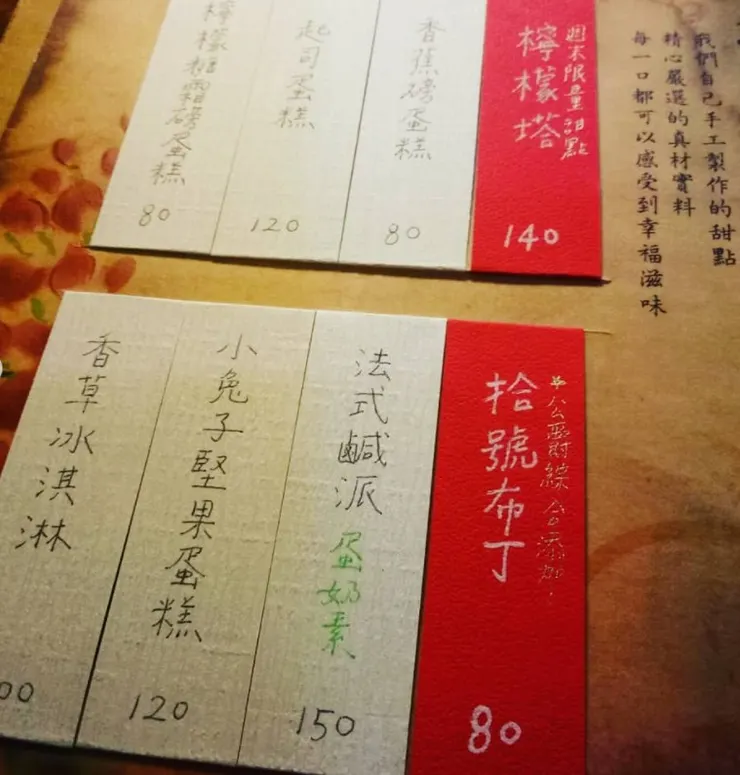 我們自己手工製作的甜點
精心嚴選的真材實料
每一口都可以感受到幸福滋味
週末限量甜點
檸檬塔
140
香蕉磅蛋糕
80
起司蛋糕
120
檸檬糖霜磅蛋糕
80
拾號布丁
80
法式鹹派
蛋奶素
150
小兔子堅果蛋糕
120
香草冰淇淋
00